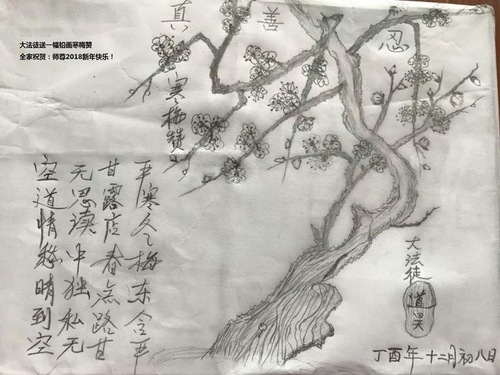 大法徒送一幅铅画寒梅赞
全家祝贺：师尊2018新年快乐！
真善忍
寒梅赞
严寒梅东含严
甘露店春点路甘
无思读中独私无
空道情愁晴到空
大法徒
道
丁酉年十二月初八日